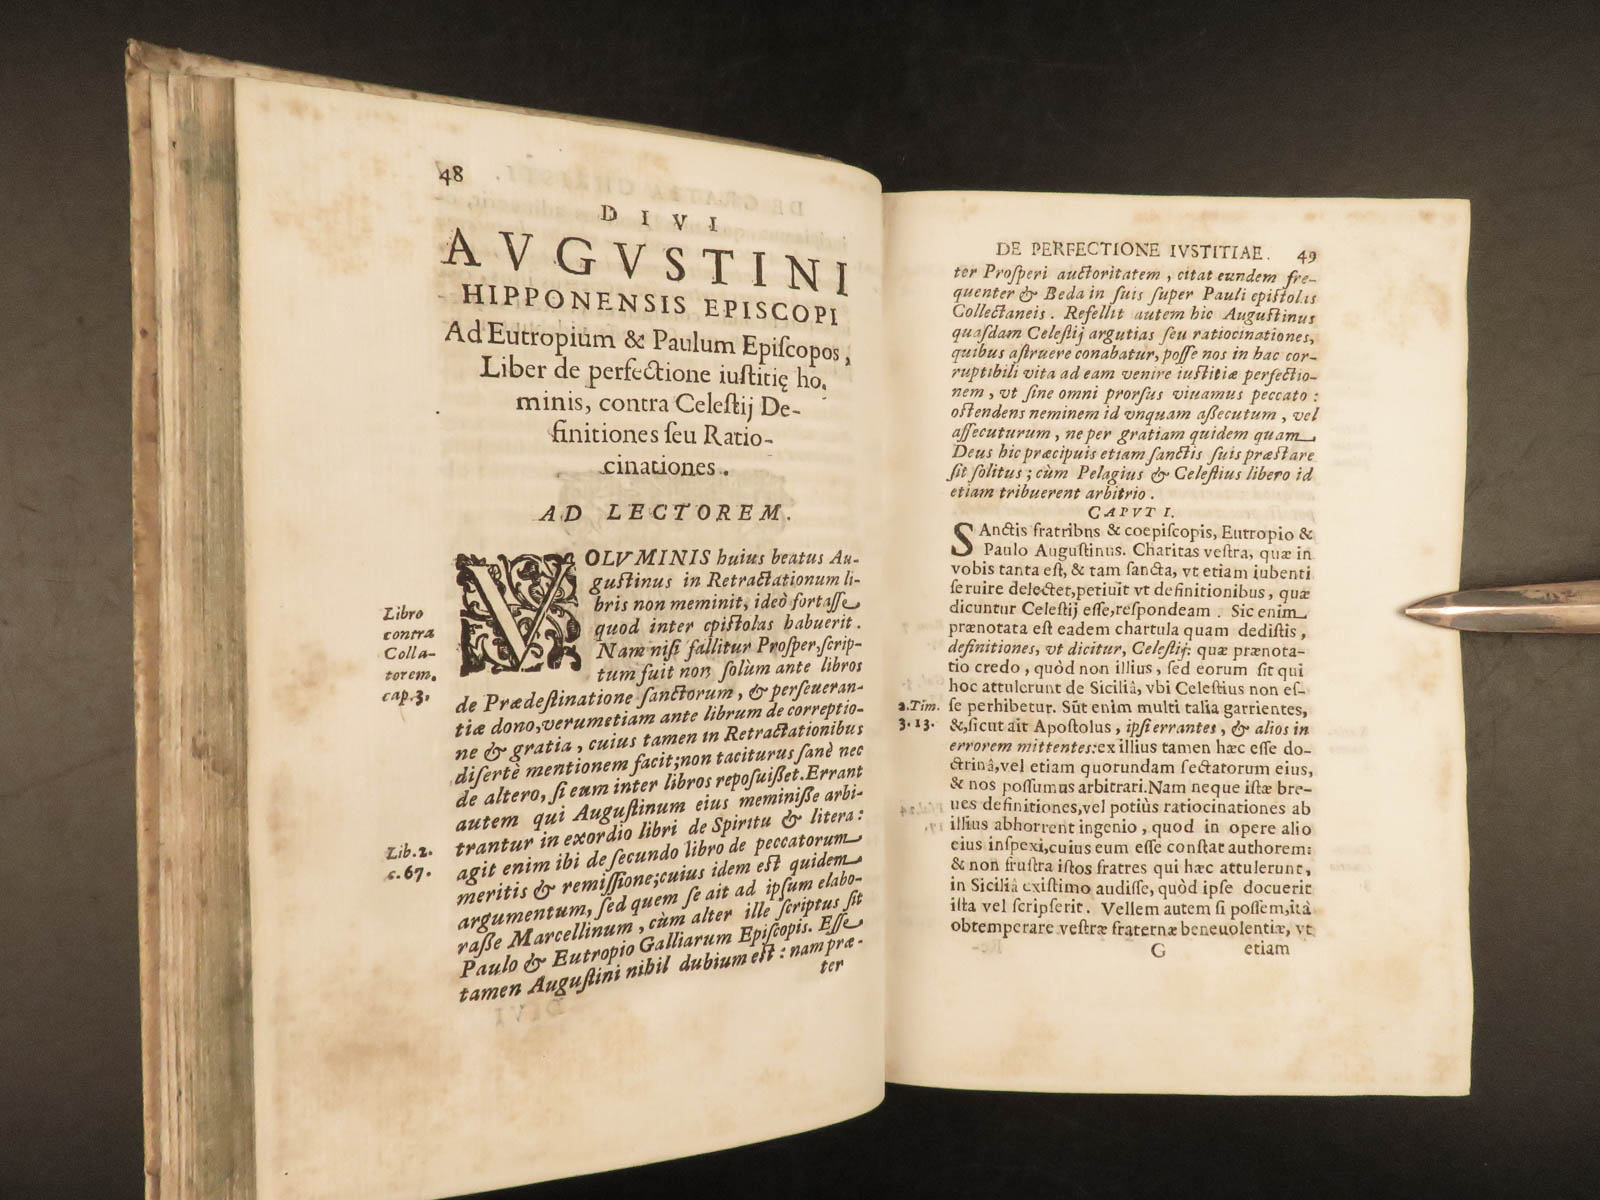 48
DIVI
AVGVSTINI
HIPPONENSIS EPISCOPI
Ad Eutropium & Paulum Epiſcopos,
Liber de perfectione iuſtitię ho.
minis, contra Celeſtij De-
finitiones ſeu Ratio-
cinationes.
AD LECTOREM.
VOLVMINIS huius beatus Au-
guſtinus in Retractationum li-
bris non meminit, ideò fortaſſe
quod inter epiſtolas habuerit.
Nam niſi fallitur Proſper, ſcrip-
tum fuit non ſolùm ante libros
de Prædeſtinatione ſanctorum, & perſeueran-
tiæ dono, verumetiam ante librum de correptio-
ne & gratia, cuius tamen in Retractationibus
diſertè mentionem facit; non taciturus ſanè nec
de altero, ſi eum inter libros repoſuiſſet. Errant
autem qui Auguſtinum eius meminiſſe arbi-
trantur in exordio libri de Spiritu & litera:
agit enim ibi de ſecundo libro de peccatorum
meritis & remiſſione; cuius idem eſt quidem
argumentum, ſed quem ſe ait ad ipſum elabo-
raſſe Marcellinum, cùm alter ille ſcriptus ſit
Paulo & Eutropio Galliarum Epiſcopis. Eſſe
tamen Auguſtini nihil dubium eſt: nam præ-
ter
Libro
contra
Colla-
torem.
cap.3.
Lib.2.
c.67.
DE PERFECTIONE IVSTITIAE. 49
ter Proſperi auctoritatem, citat eundem fre-
quenter & Beda in ſuis ſuper Pauli epiſtolis
Collectaneis. Refellit autem hic Auguſtinus
quaſdam Celeſtij argutias ſeu ratiocinationes,
quibus aſtruere conabatur, poſſe nos in hac cor-
ruptibili vita ad eam venire iuſtitiæ perfectio-
nem, vt ſine omni prorſus viuamus peccato:
oſtendens neminem id vnquam aſſecutum, vel
aſſecuturum, ne per gratiam quidem quam
Deus hic præcipuis etiam ſanctis ſuis præſtare
ſit ſolitus; cùm Pelagius & Celeſtius libero id
etiam tribuerent arbitrio.
CAPVT I.
SAnctis fratribns & coepiſcopis, Eutropio &
Paulo Auguſtinus. Charitas veſtra, quæ in
vobis tanta eſt, & tam ſancta, vt etiam iubenti
ſeruire delectet, petiuit vt definitionibus, quæ
dicuntur Celeſtij eſſe, reſpondeam. Sic enim
prænotata eſt eadem chartula quam dediſtis,
definitiones, vt dicitur, Celeſtij: quæ prænota-
tio credo, quòd non illius, ſed eorum ſit qui
hoc attulerunt de Siciliâ, vbi Celeſtius non eſ-
2.Tim. ſe perhibetur. Sũt enim multi talia garrientes,
3.13. &, ſicut ait Apoſtolus, ipſi errantes, & alios in
errorem mittentes: ex illius tamen hæc eſſe do-
ctrinâ, vel etiam quorundam ſectatorum eius,
& nos poſſumus arbitrari. Nam neque iſtæ bre-
ues definitiones, vel potiùs ratiocinationes ab
illius abhorrent ingenio, quod in opere alio
eius inſpexi, cuius eum eſſe conſtat authorem:
& non fruſtra iſtos fratres qui hæc attulerunt,
in Siciliâ exiſtimo audiſſe, quòd ipſe docuerit
iſta vel ſcripſerit. Vellem autem ſi poſſem, itâ
obtemperare veſtræ fraternæ beneuolentiæ, vt
G etiam